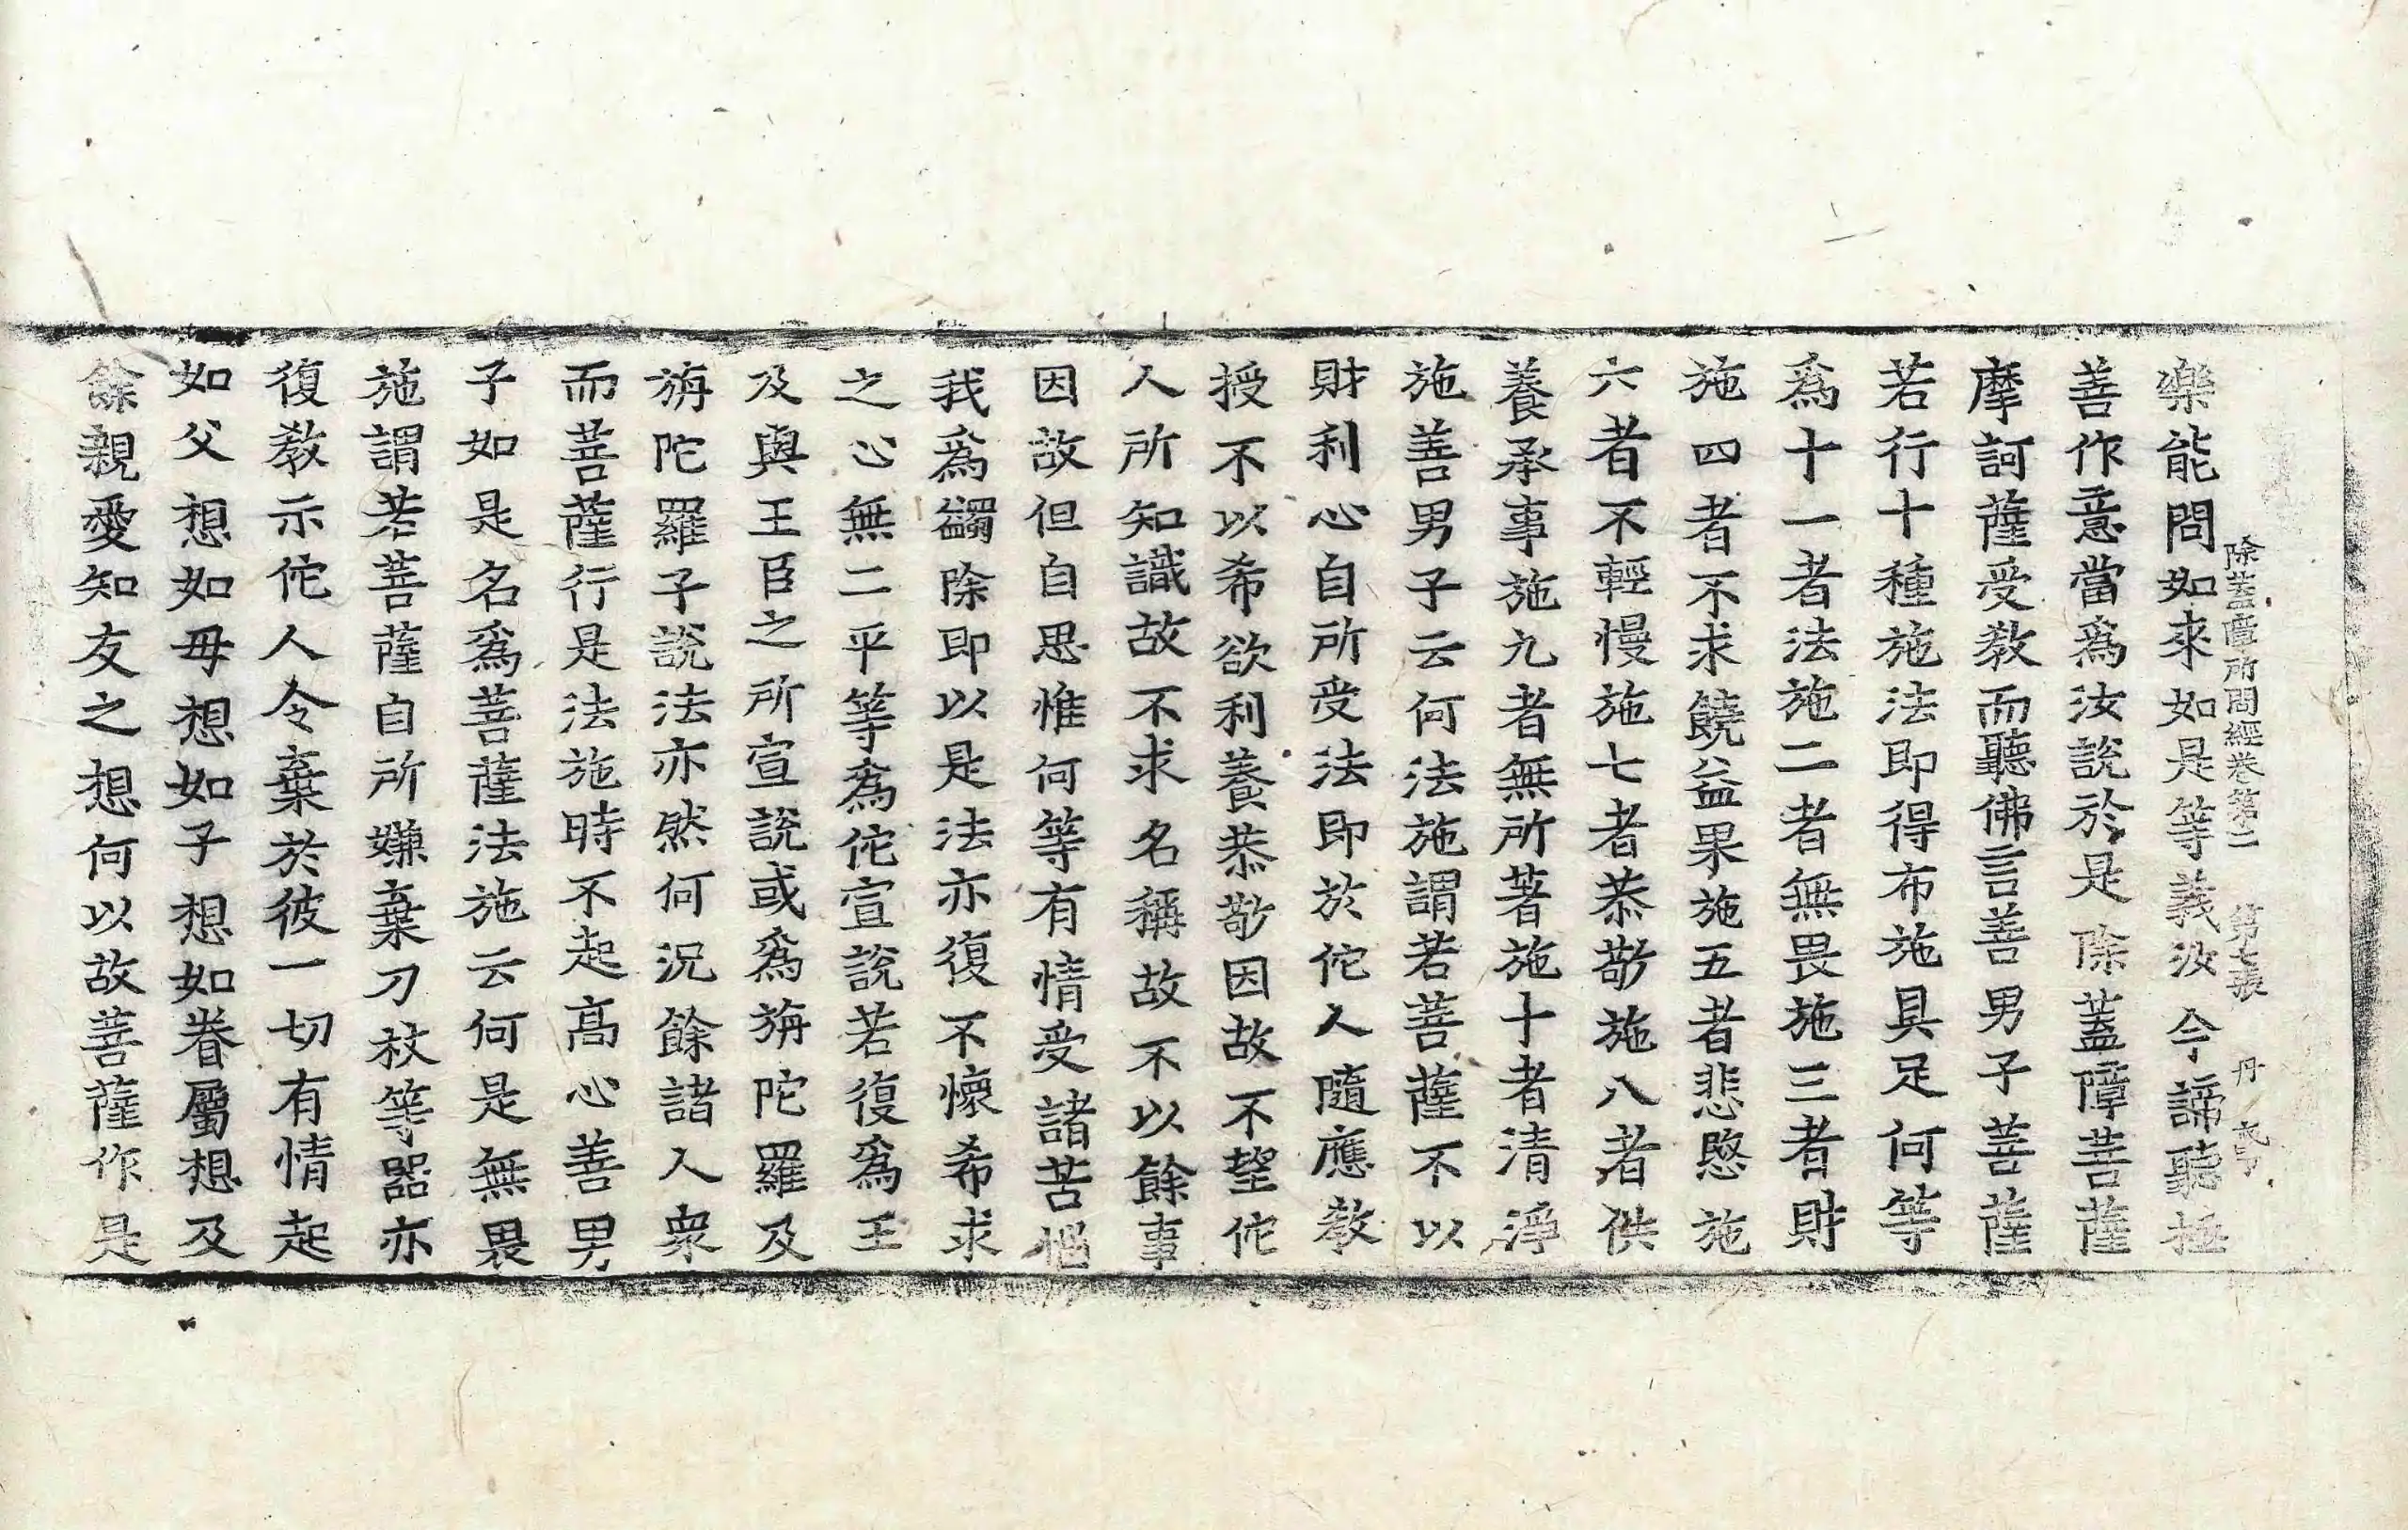 除蓋障所問經卷第二 第七張 丹
樂能問如來如是等義汝今諦聽極
善作意當爲汝說於是除蓋障菩薩
摩訶薩受教而聽佛言善男子菩薩
若行十種施法即得布施具足何等
爲十一者法施二者無畏施三者財
施四者不求饒益果施五者悲愍施
六者不輕慢施七者恭敬施八者供
養承事施九者無所著施十者清淨
施善男子云何法施謂若菩薩不以
財利心自所受法即於佗人隨應教
授不以希欲利養恭敬因故不望佗
人所知識故不求名稱故不以餘事
因故但自思惟何等有情受諸苦惱
我爲蠲除即以是法亦復不懷希求
之心無二平等爲佗宣說若復爲王
及與王臣之所宣說或爲旃陀羅及
旃陀羅子說法亦然何況餘諸人衆
而菩薩行是法施時不起高心善男
子如是名爲菩薩法施云何是無畏
施謂若菩薩自所嫌棄刀杖等器亦
復教示佗人令棄於彼一切有情起
如父想如母想如子想如眷屬想及
餘親愛知友之想何以故菩薩作是